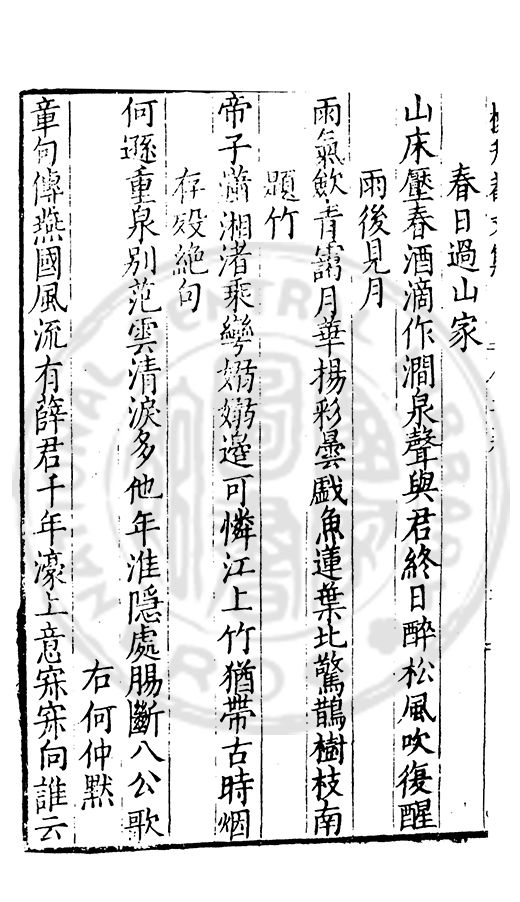 春日過山家
山床壓春酒滴作澗泉聲與君終日醉松風吹復醒
雨後見月
雨氣歛青靄月華揚彩曇戲魚蓮葉北驚鵲樹枝南
題竹
帝子瀟湘渚乘鸞嫋嫋邊可憐江上竹猶帶古時烟
存歿絶句
何遜重泉别范雲清淚多他年淮隱處腸斷八公歌
右何仲默
章句傳燕國風流有薛君千年濠上意寂寂向誰云